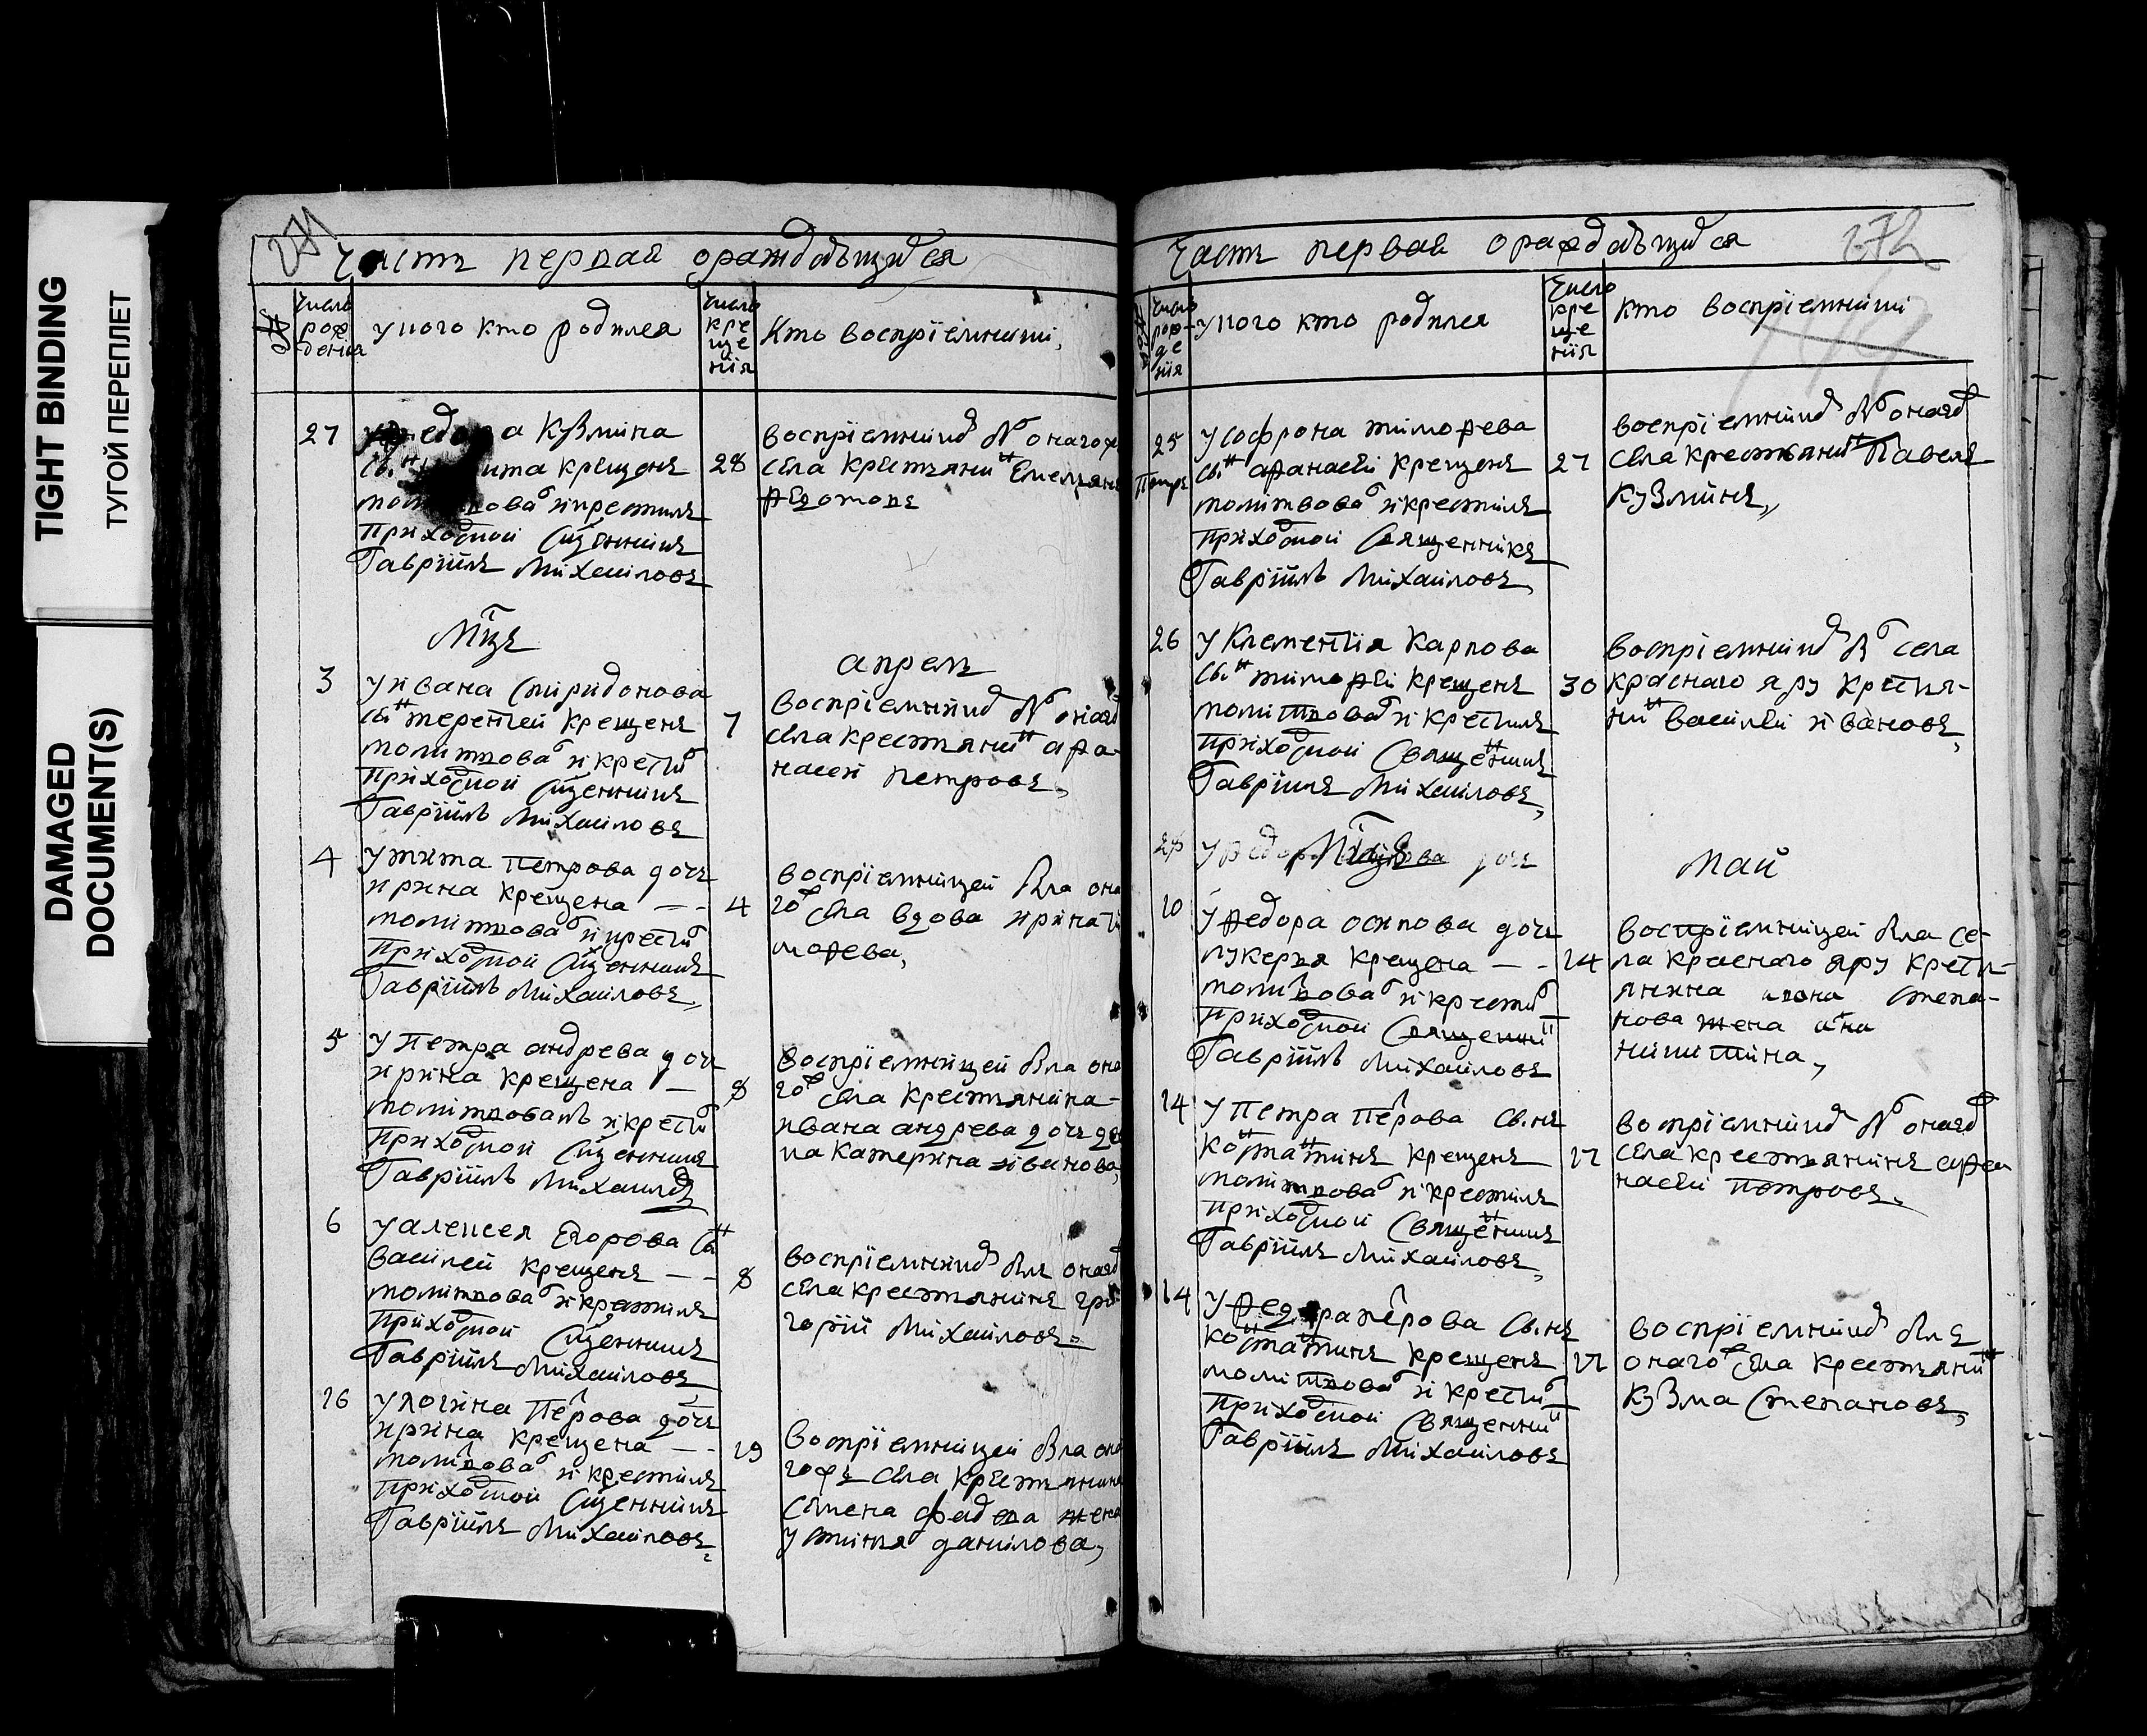 TIGHT BINDING
ТУГОЙ ПЕРЕПЛЕТ
DAMAGED
DOCUMENT(S)
271
Часть первая ораждаѣщихся
№
Число рождения
укого кто родился
Число крещения
Кто восприемники
27
Федора Кузмина
сынъ крещенъ
молитвовалъ и крестилъ
приходской Сщенникъ
Гаврiилъ Михаиловъ
28
восприемникомъ былъ онагожъ
села крестьянинъ Емельянъ
Федотовъ
Мцъ
апрель
3
у ивана Спиридонова
сынъ терентей крещенъ
молитвовалъ и крестилъ
приходской Сщенникъ
Гаврiилъ Михаиловъ
7
восприемникомъ былъ онагожъ
села крестьянинъ афа-
насей петровъ
4
у тита петрова дочь
ирина крещена
молитвовалъ и крестилъ
приходской Сщенникъ
Гаврiилъ Михаиловъ
4
восприемницей была она
гожъ села вдова ирина ти
мофева,
5
у петра андрева дочь
ирина крещена
молитвовалъ и крестилъ
приходской Сщенникъ
Гаврiилъ Михаиловъ
8
восприемницей была она
гожъ села крестьянина
ивана андрева дочь дев
ка катерина иванова,
6
у алексея Егорова сынъ
василей крещенъ
молитвовалъ и крестилъ
приходской Сщенникъ
Гаврiилъ Михаиловъ
8
восприемникомъ былъ онагожъ
села крестьянинъ гри
горiй Михаиловъ
16
у логина петрова дочь
ирина крещена
молитвовалъ и крестилъ
приходской Сщенникъ
Гаврiилъ Михаиловъ
19
восприемницей была она
гожъ села крестьянина
семена фадева жена
устинья данилова,
272
Часть первая ораждаѣщихся
Число рождения
укого кто родился
Число крещения
кто восприемники
25
у софрона тимофева
сынъ афанасей крещенъ
молитвовалъ и крестилъ
приходской Священникъ
Гаврiилъ Михаиловъ
27
восприемникомъ былъ онагожъ
села крестьянинъ Павелъ
Кузминъ
26
у Клементiя Карпова
сынъ тимофей крещенъ
молитвовалъ и крестилъ
приходской Священникъ
Гаврiилъ Михаиловъ
30
восприемникомъ былъ села
красного яру крестья-
нинъ василей ивановъ
Мцъ
май
10
у федора осипова дочь
лукерья крещена
молитвовалъ и крестилъ
приходской Священникъ
Гаврiилъ Михаиловъ
14
восприемницей была се-
ла красного яру кресть-
янина степа-
нова жена анна
никитина,
14
у петра петрова сынъ
костантинъ крещенъ
молитвовалъ и крестилъ
приходской Священникъ
Гаврiилъ Михаиловъ
17
восприемникомъ былъ онагожъ
села крестьянинъ афа
насей петровъ
14
сынъ
костантинъ крещенъ
молитвовалъ и крестилъ
приходской Священникъ
Гаврiилъ Михаиловъ
17
восприемникомъ былъ
онагожъ села крестьянинъ
Кузма Степановъ